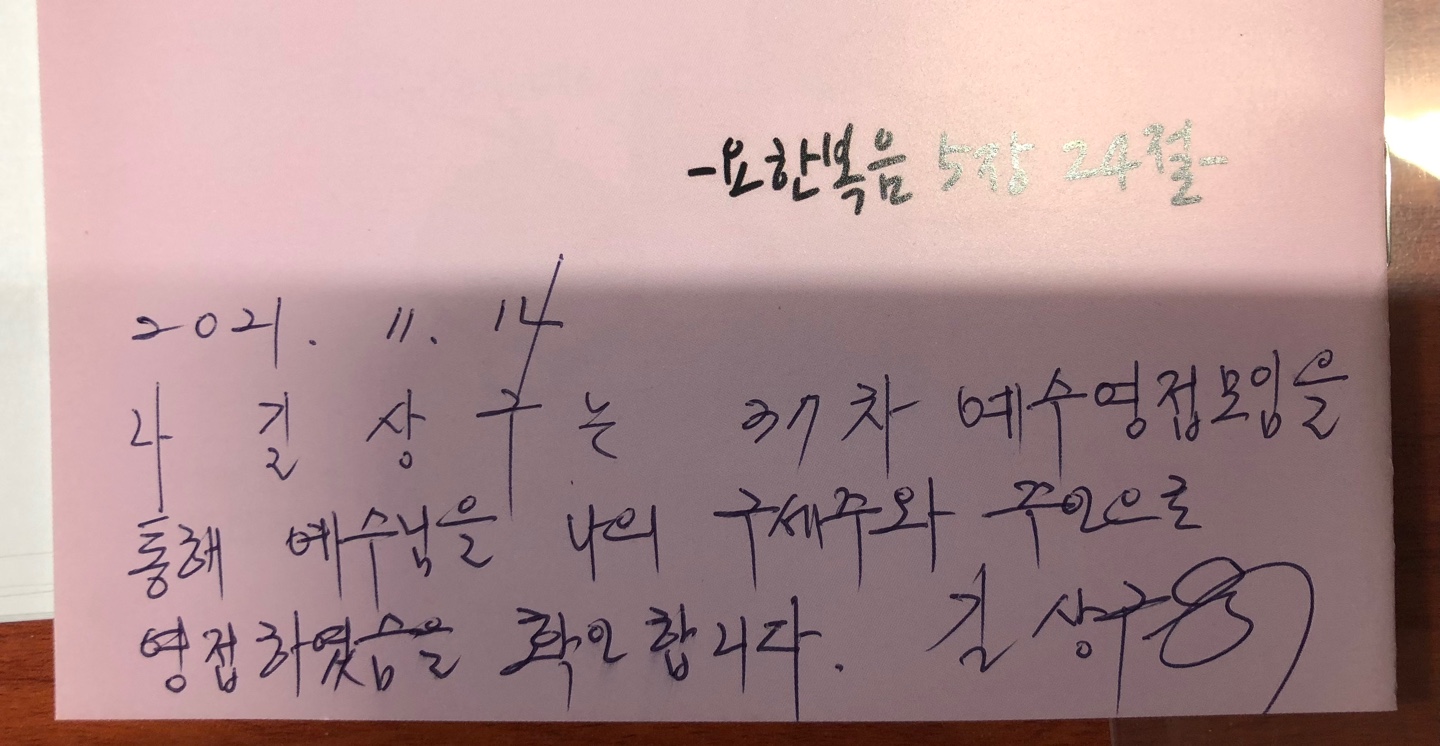 -요한복음 5장 24절-
2021. 11. 14
나 길상구는 37차 예수영접모임을
통해 예수님을 나의 구세주와 주인으로
영접하였슴을 확인합니다. 길상구